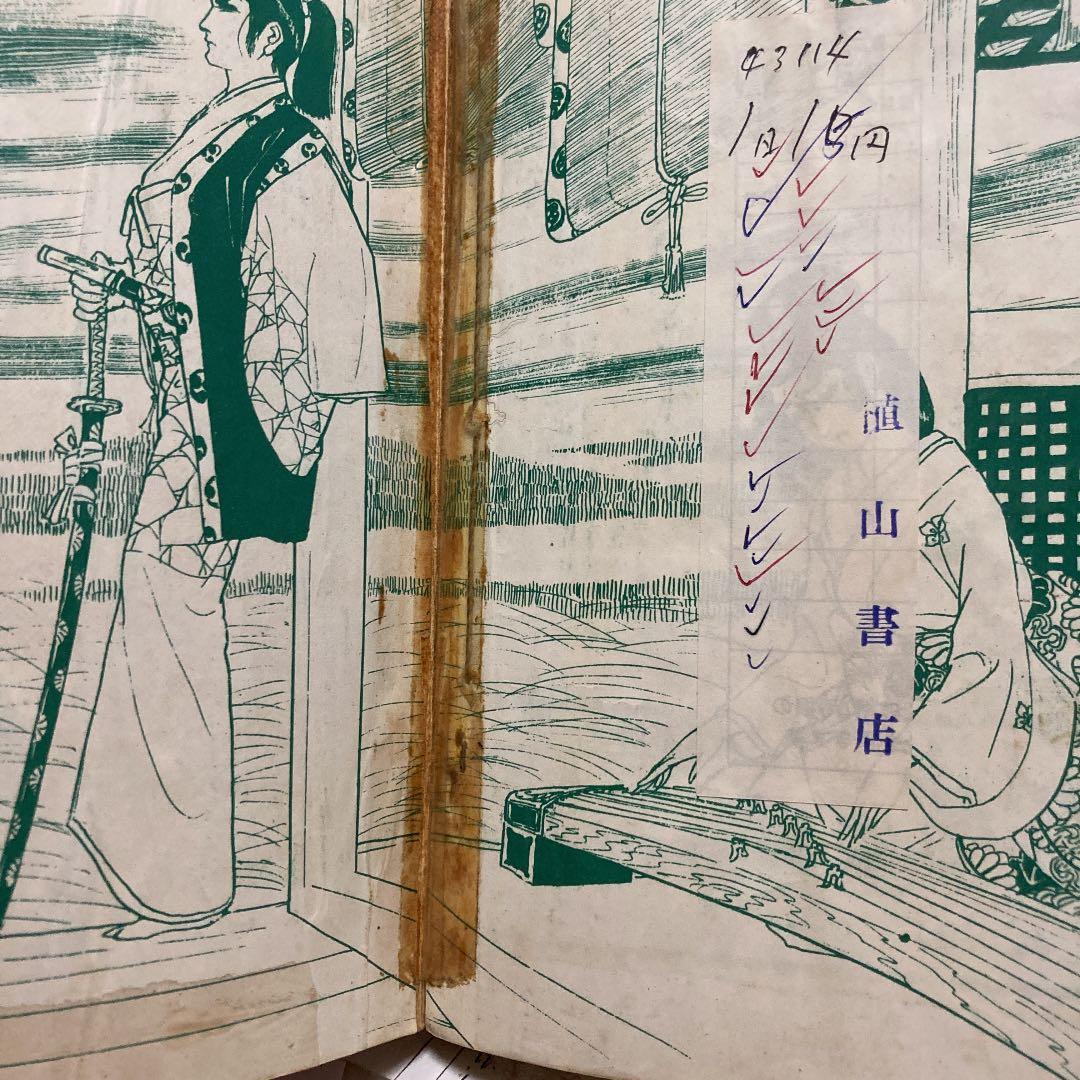 43114
1日15円
植山書店